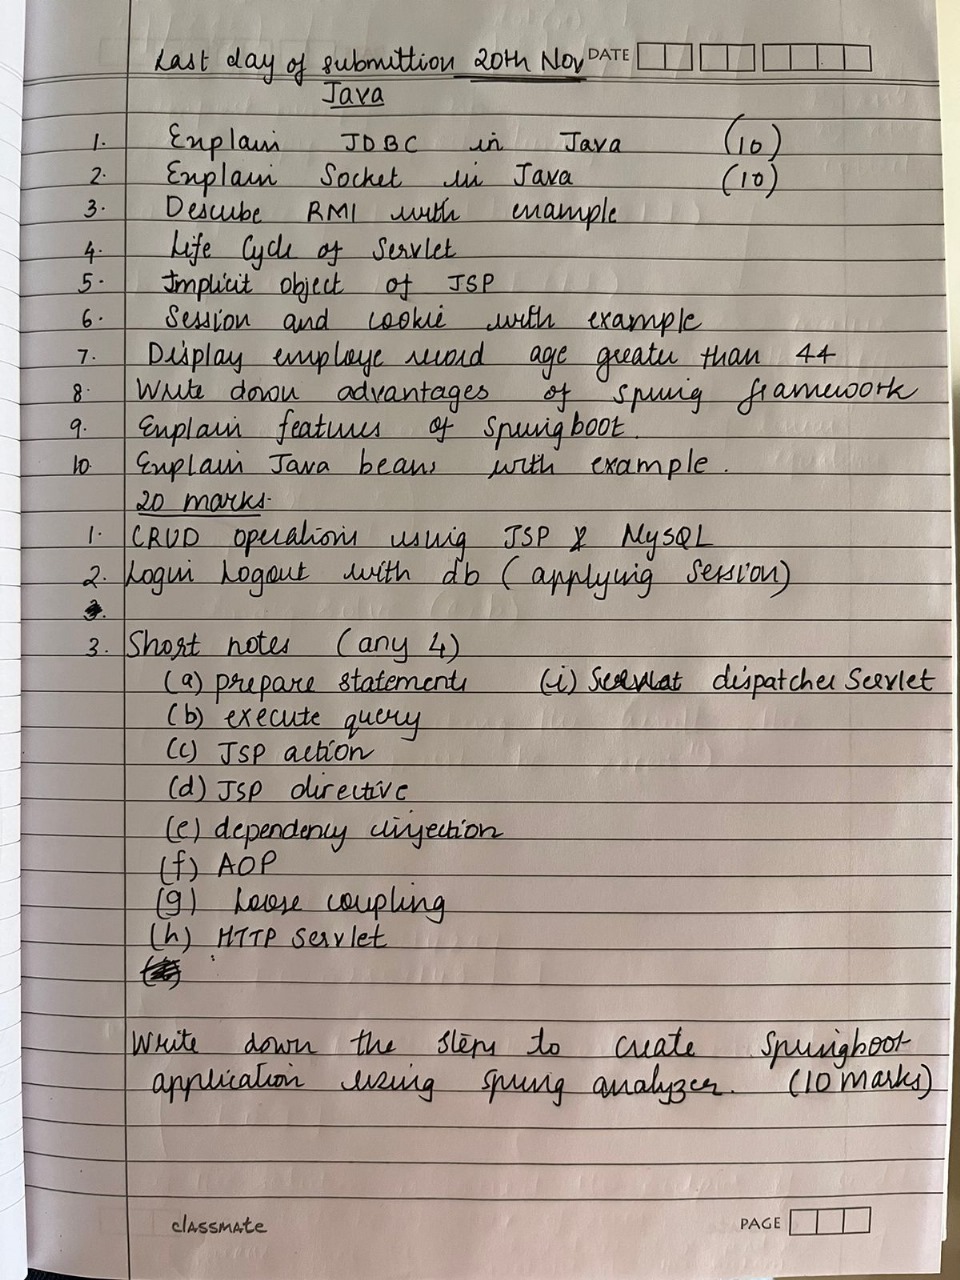 Last day of submittion 20th Nov DATE
Java
1. Explain JDBC in Java (10)
2. Explain Socket in Java (10)
3. Describe RMI with example
4. Life Cycle of Servlet
5. Implicit object of JSP
6. Session and cookie with example
7. Display employe record age greater than 44
8. Write down advantages of spring framework
9. Explain features of Springboot.
10. Explain Java beans with example.
20 marks.
1. CRUD operations using JSP & MySQL
2. Login Logout with db (applying Session)
3. Short notes (any 4)
(a) prepare statements (i) dispatcher Servlet
(b) execute query
(c) JSP action
(d) JSP directive
(e) dependency injection
(f) AOP
(g) Loose coupling
(h) HTTP Servlet
Write down the steps to create Springboot
application using spring analyzer. (10 marks)
classmate PAGE